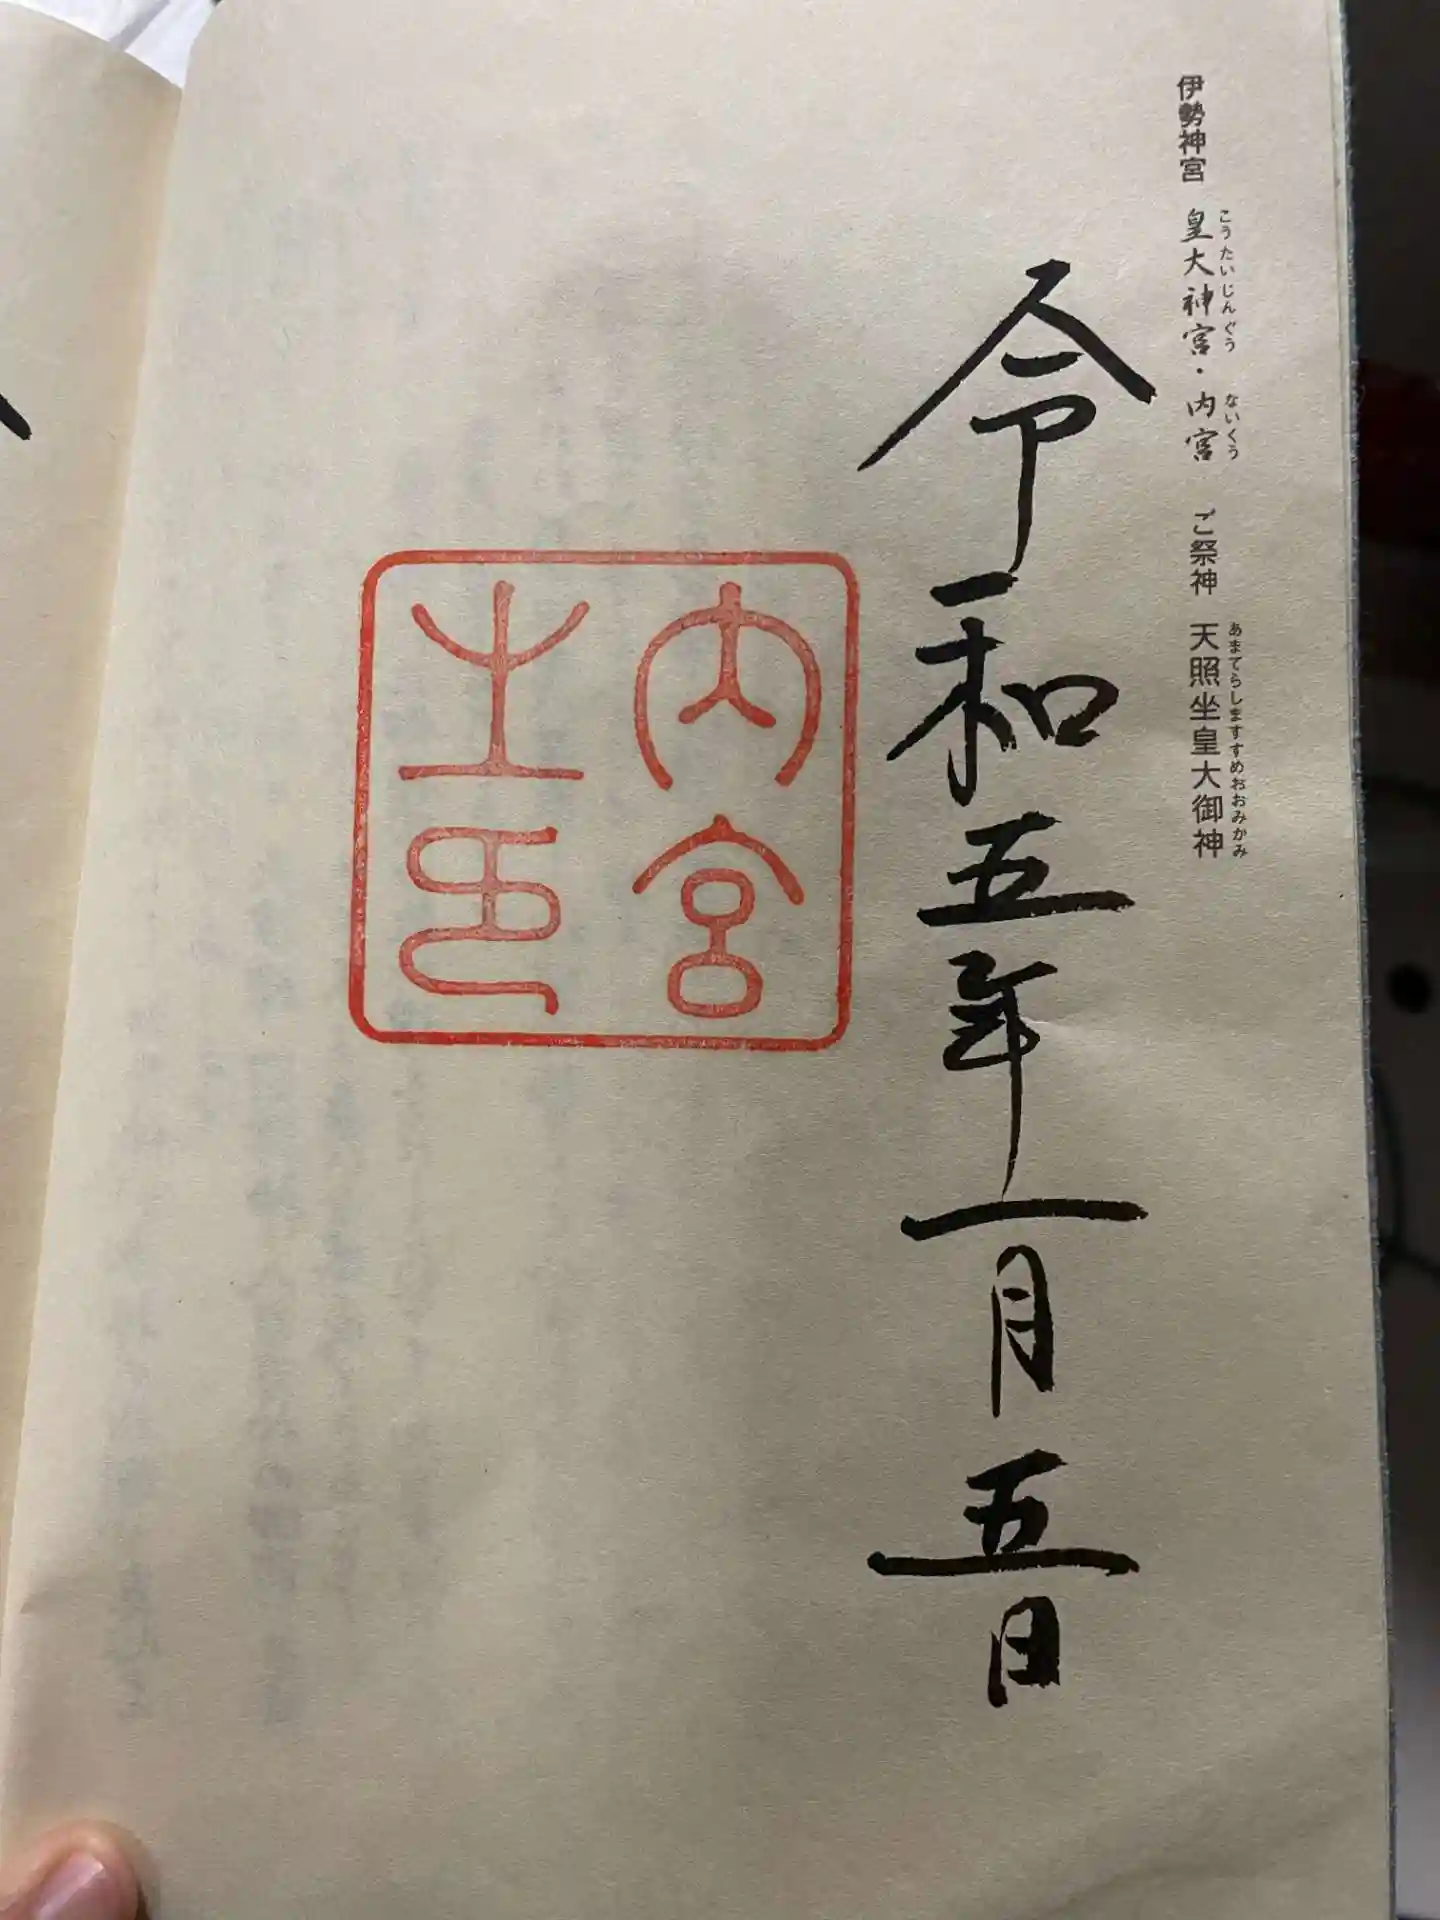 伊勢神宮 皇大神宮・内宮 ご祭神 天照坐皇大御神
こうたいじんぐう ないくう あまてらしますすめおおみかみ
令和五年一月五日
内宮
之印